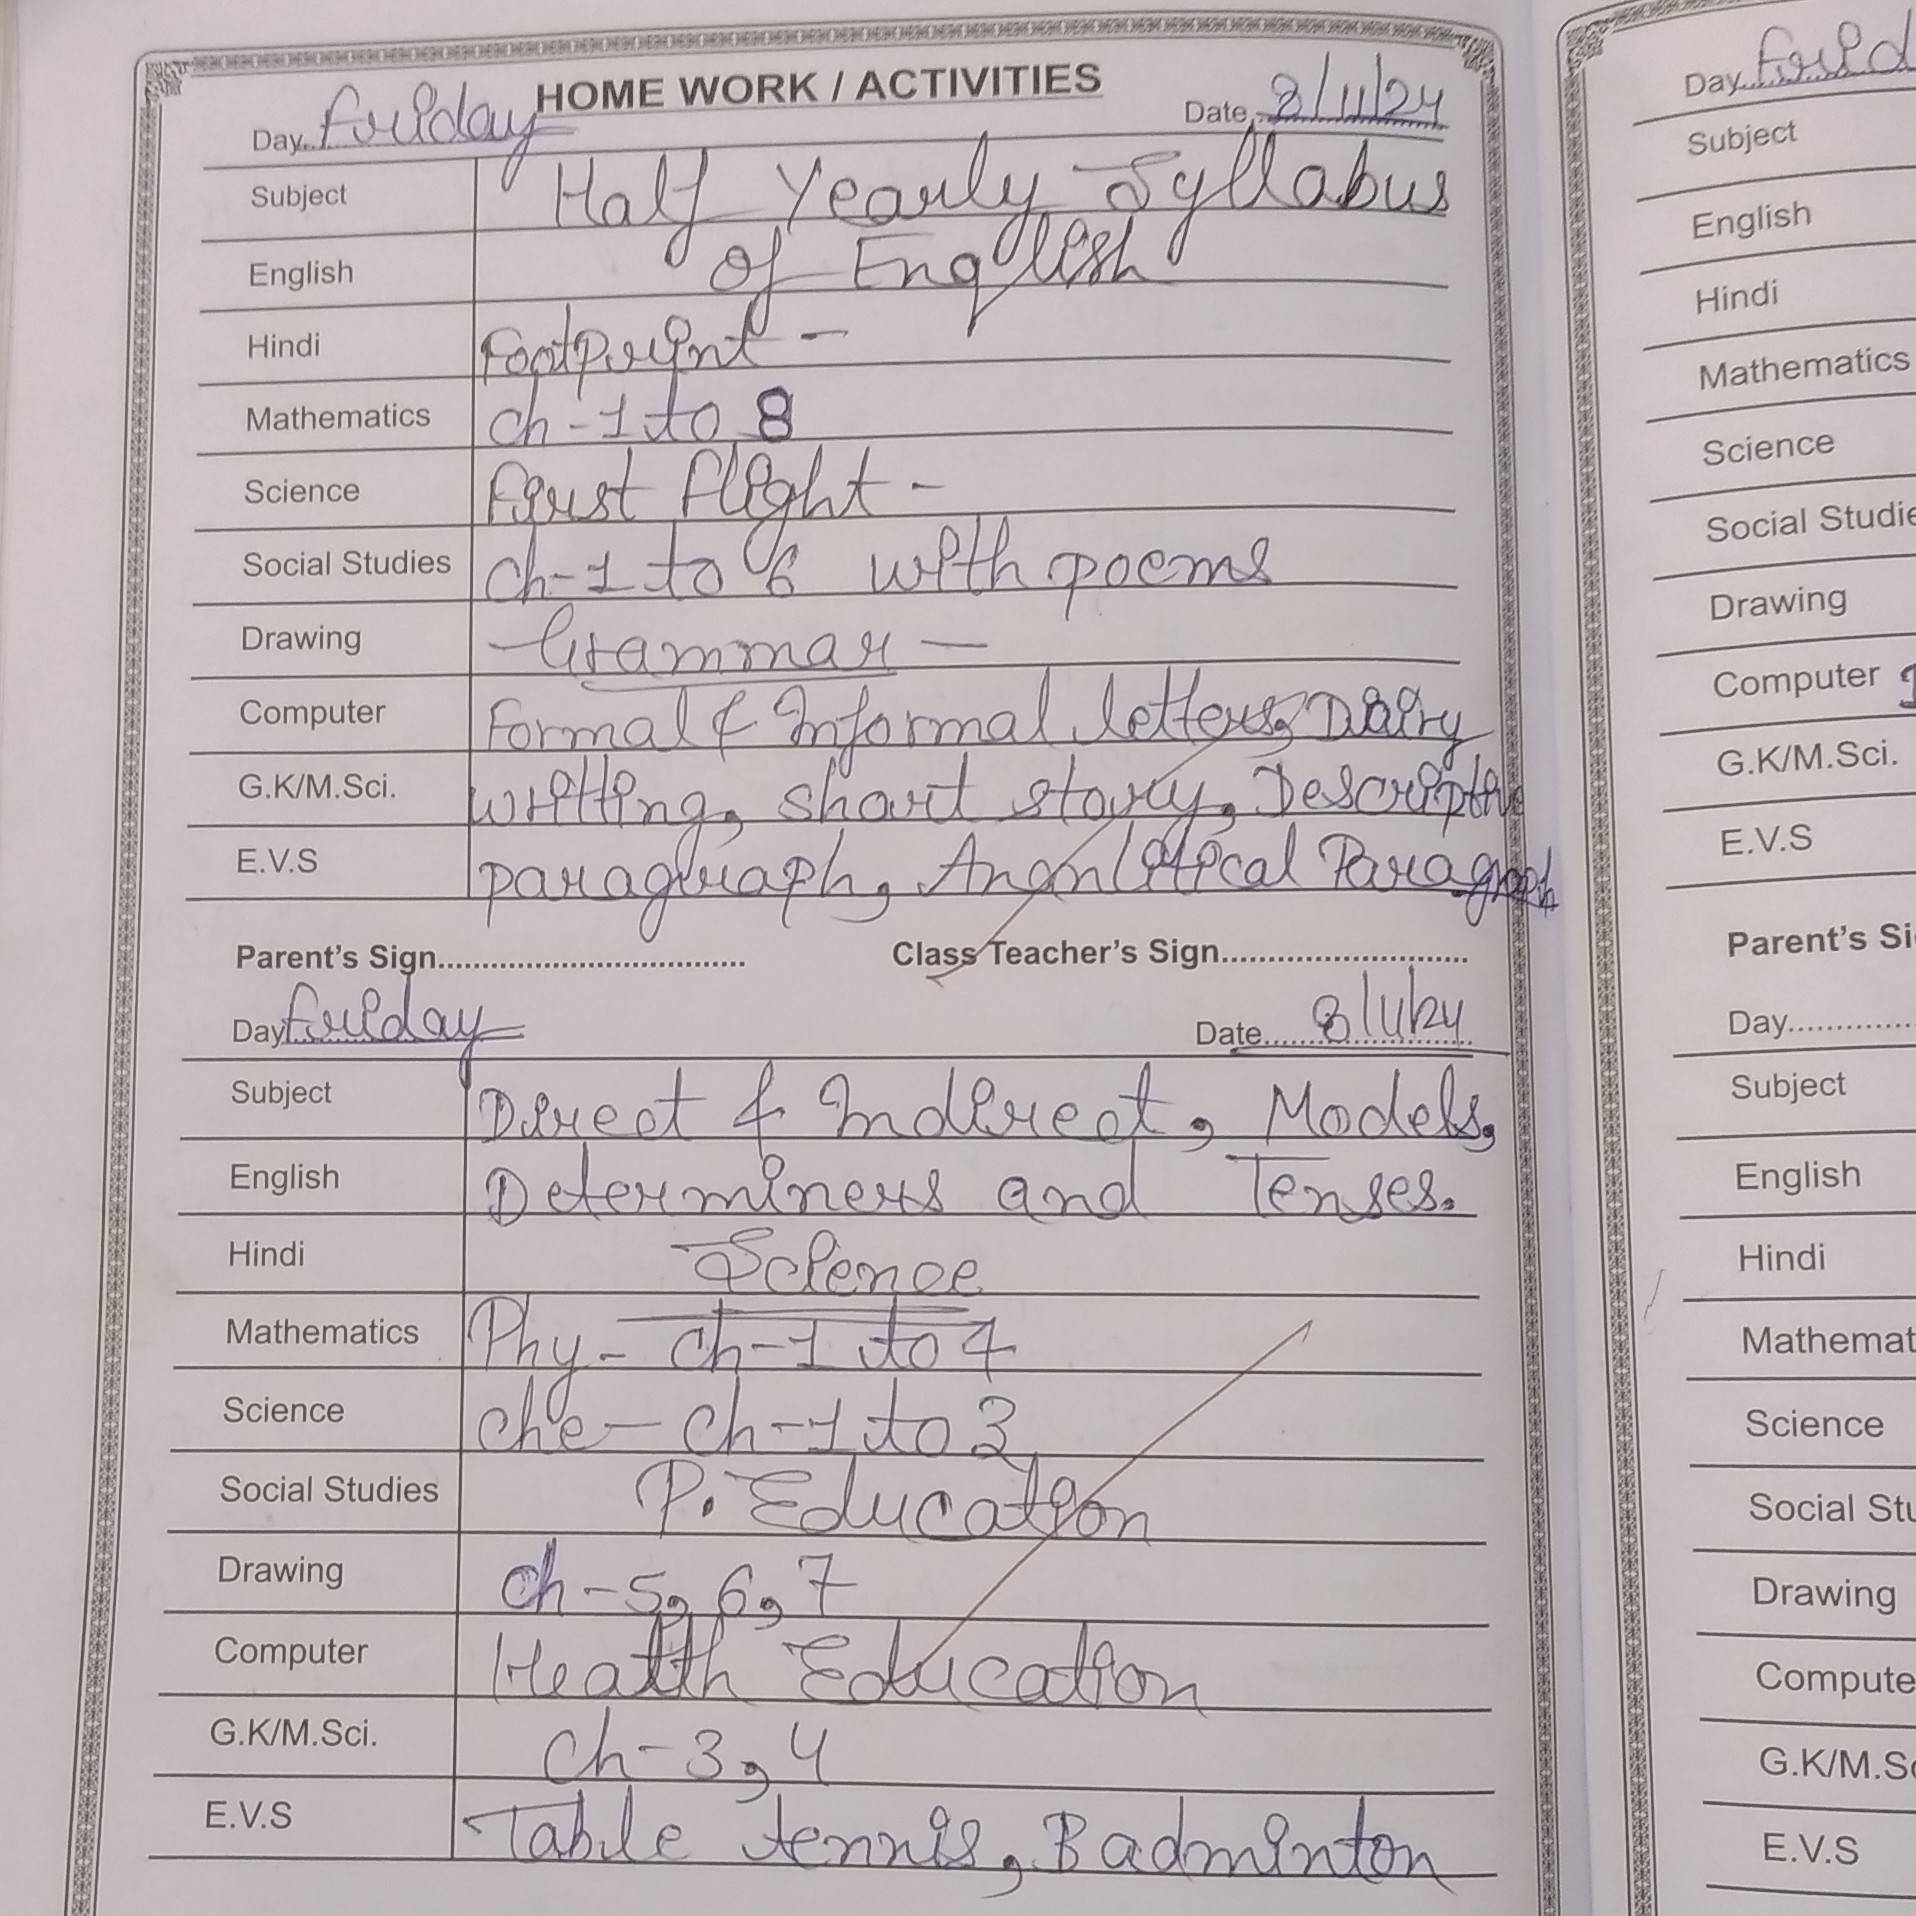 HOME WORK / ACTIVITIES
Day. Friday Date. 8/11/24
Subject Half Yearly Syllabus
English of English
Hindi Footprint -
Mathematics Ch-1 to 8
Science First flight -
Social Studies Ch-1 to 6 with poems
Drawing Grammar -
Computer Formal & Informal letters, Dairy
G.K/M.Sci. writting, short story, Descriptive
E.V.S paragraph, Ananlytical Paragraph
Parent's Sign. Class Teacher's Sign.
Day Friday Date. 8/11/24
Subject Direct & Indirect, Models,
English Determiners and Tenses.
Hindi Science
Mathematics Phy- Ch-1 to 4
Science Che- Ch-1 to 3
Social Studies P. Education
Drawing Ch-5, 6, 7
Computer Health Education
G.K/M.Sci. Ch-3, 4
E.V.S Table tennis, Badminton
Day. Frid
Subject
English
Hindi
Mathematics
Science
Social Studie
Drawing
Computer
G.K/M.Sci.
E.V.S
Parent's Si
Day.
Subject
English
Hindi
Mathemat
Science
Social Stu
Drawing
Compute
G.K/M.Sc
E.V.S